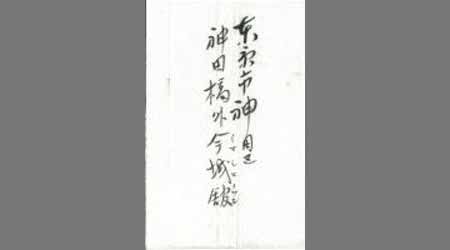 东京市神田区
神田橋外今城館